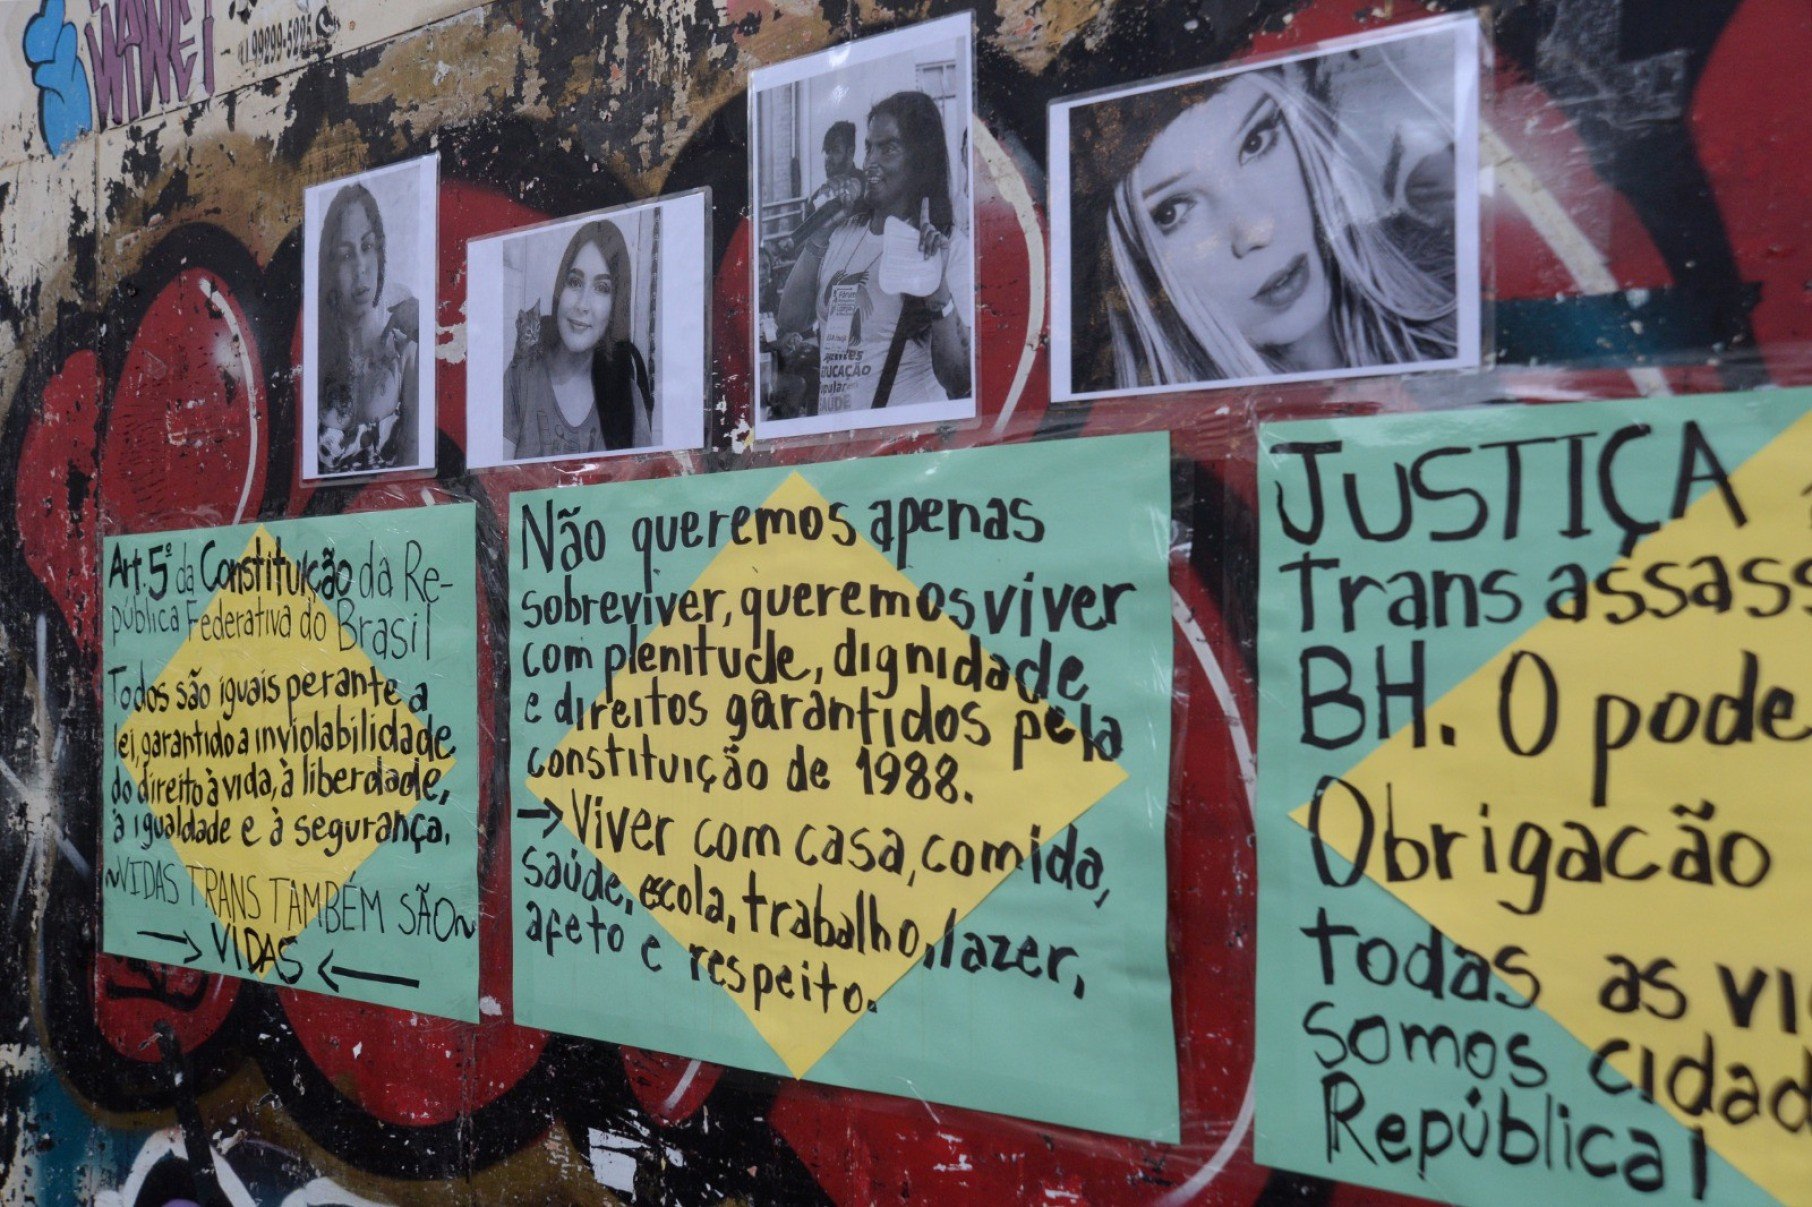 Art. 5º da Constituição da Re-
pública Federativa do Brasil
Todos são iguais perante a
lei, garantido a inviolabilidade
do direito à vida, à liberdade,
à igualdade e à segurança.
~VIDAS TRANS TAMBÉM SÃO~
→ VIDAS ←
Não queremos apenas
sobreviver, queremos viver
com plenitude, dignidade
e direitos garantidos pela
constituição de 1988.
→ Viver com casa, comida,
saúde, escola, trabalho, lazer,
afeto e respeito.
JUSTIÇA
Trans assass
BH. O pode
Obrigacão
todas as vi
Somos cidad
República!
EDUCAÇÃO
SAÚDE